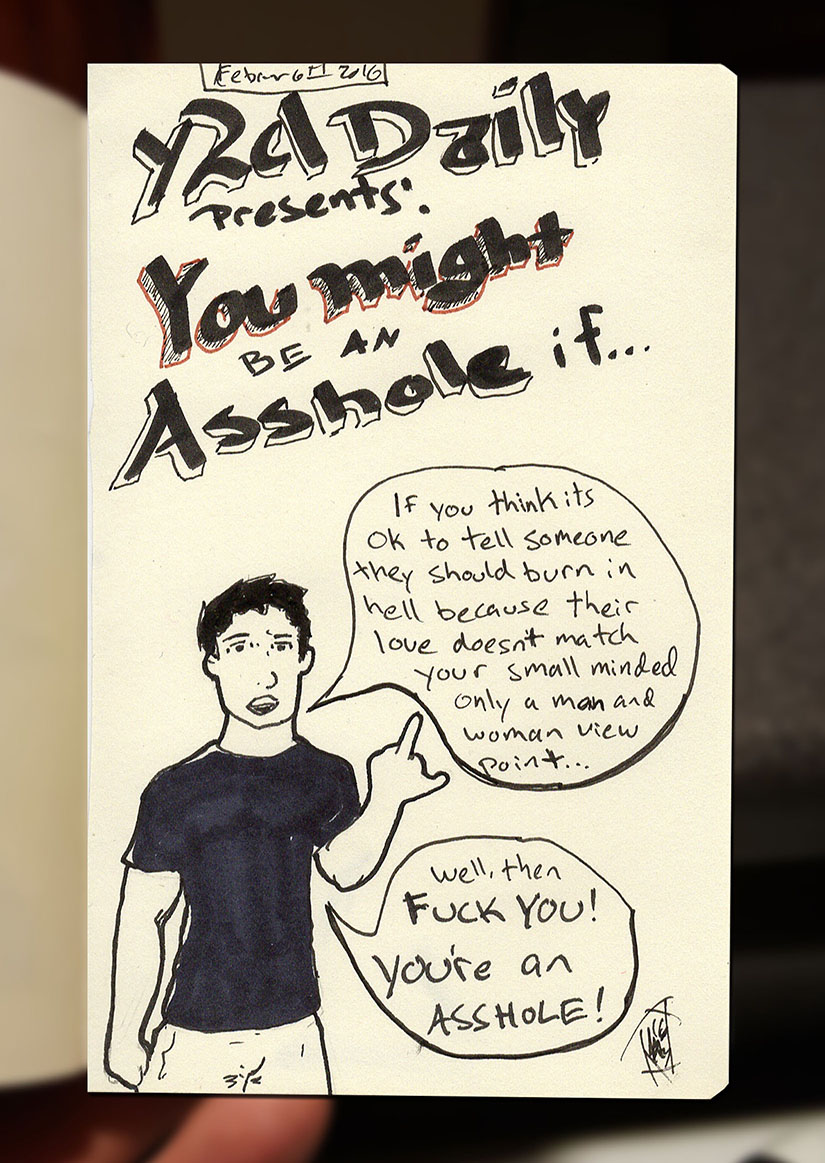 Febru 6th 2016
Y2d Daily
Presents:
You might
BE AN
Asshole if...
If you think its
Ok to tell someone
they should burn in
hell because their
love doesnt match
your small minded
only a man and
woman view
point...
Well, then
FUCK YOU!
you're an
ASSHOLE!